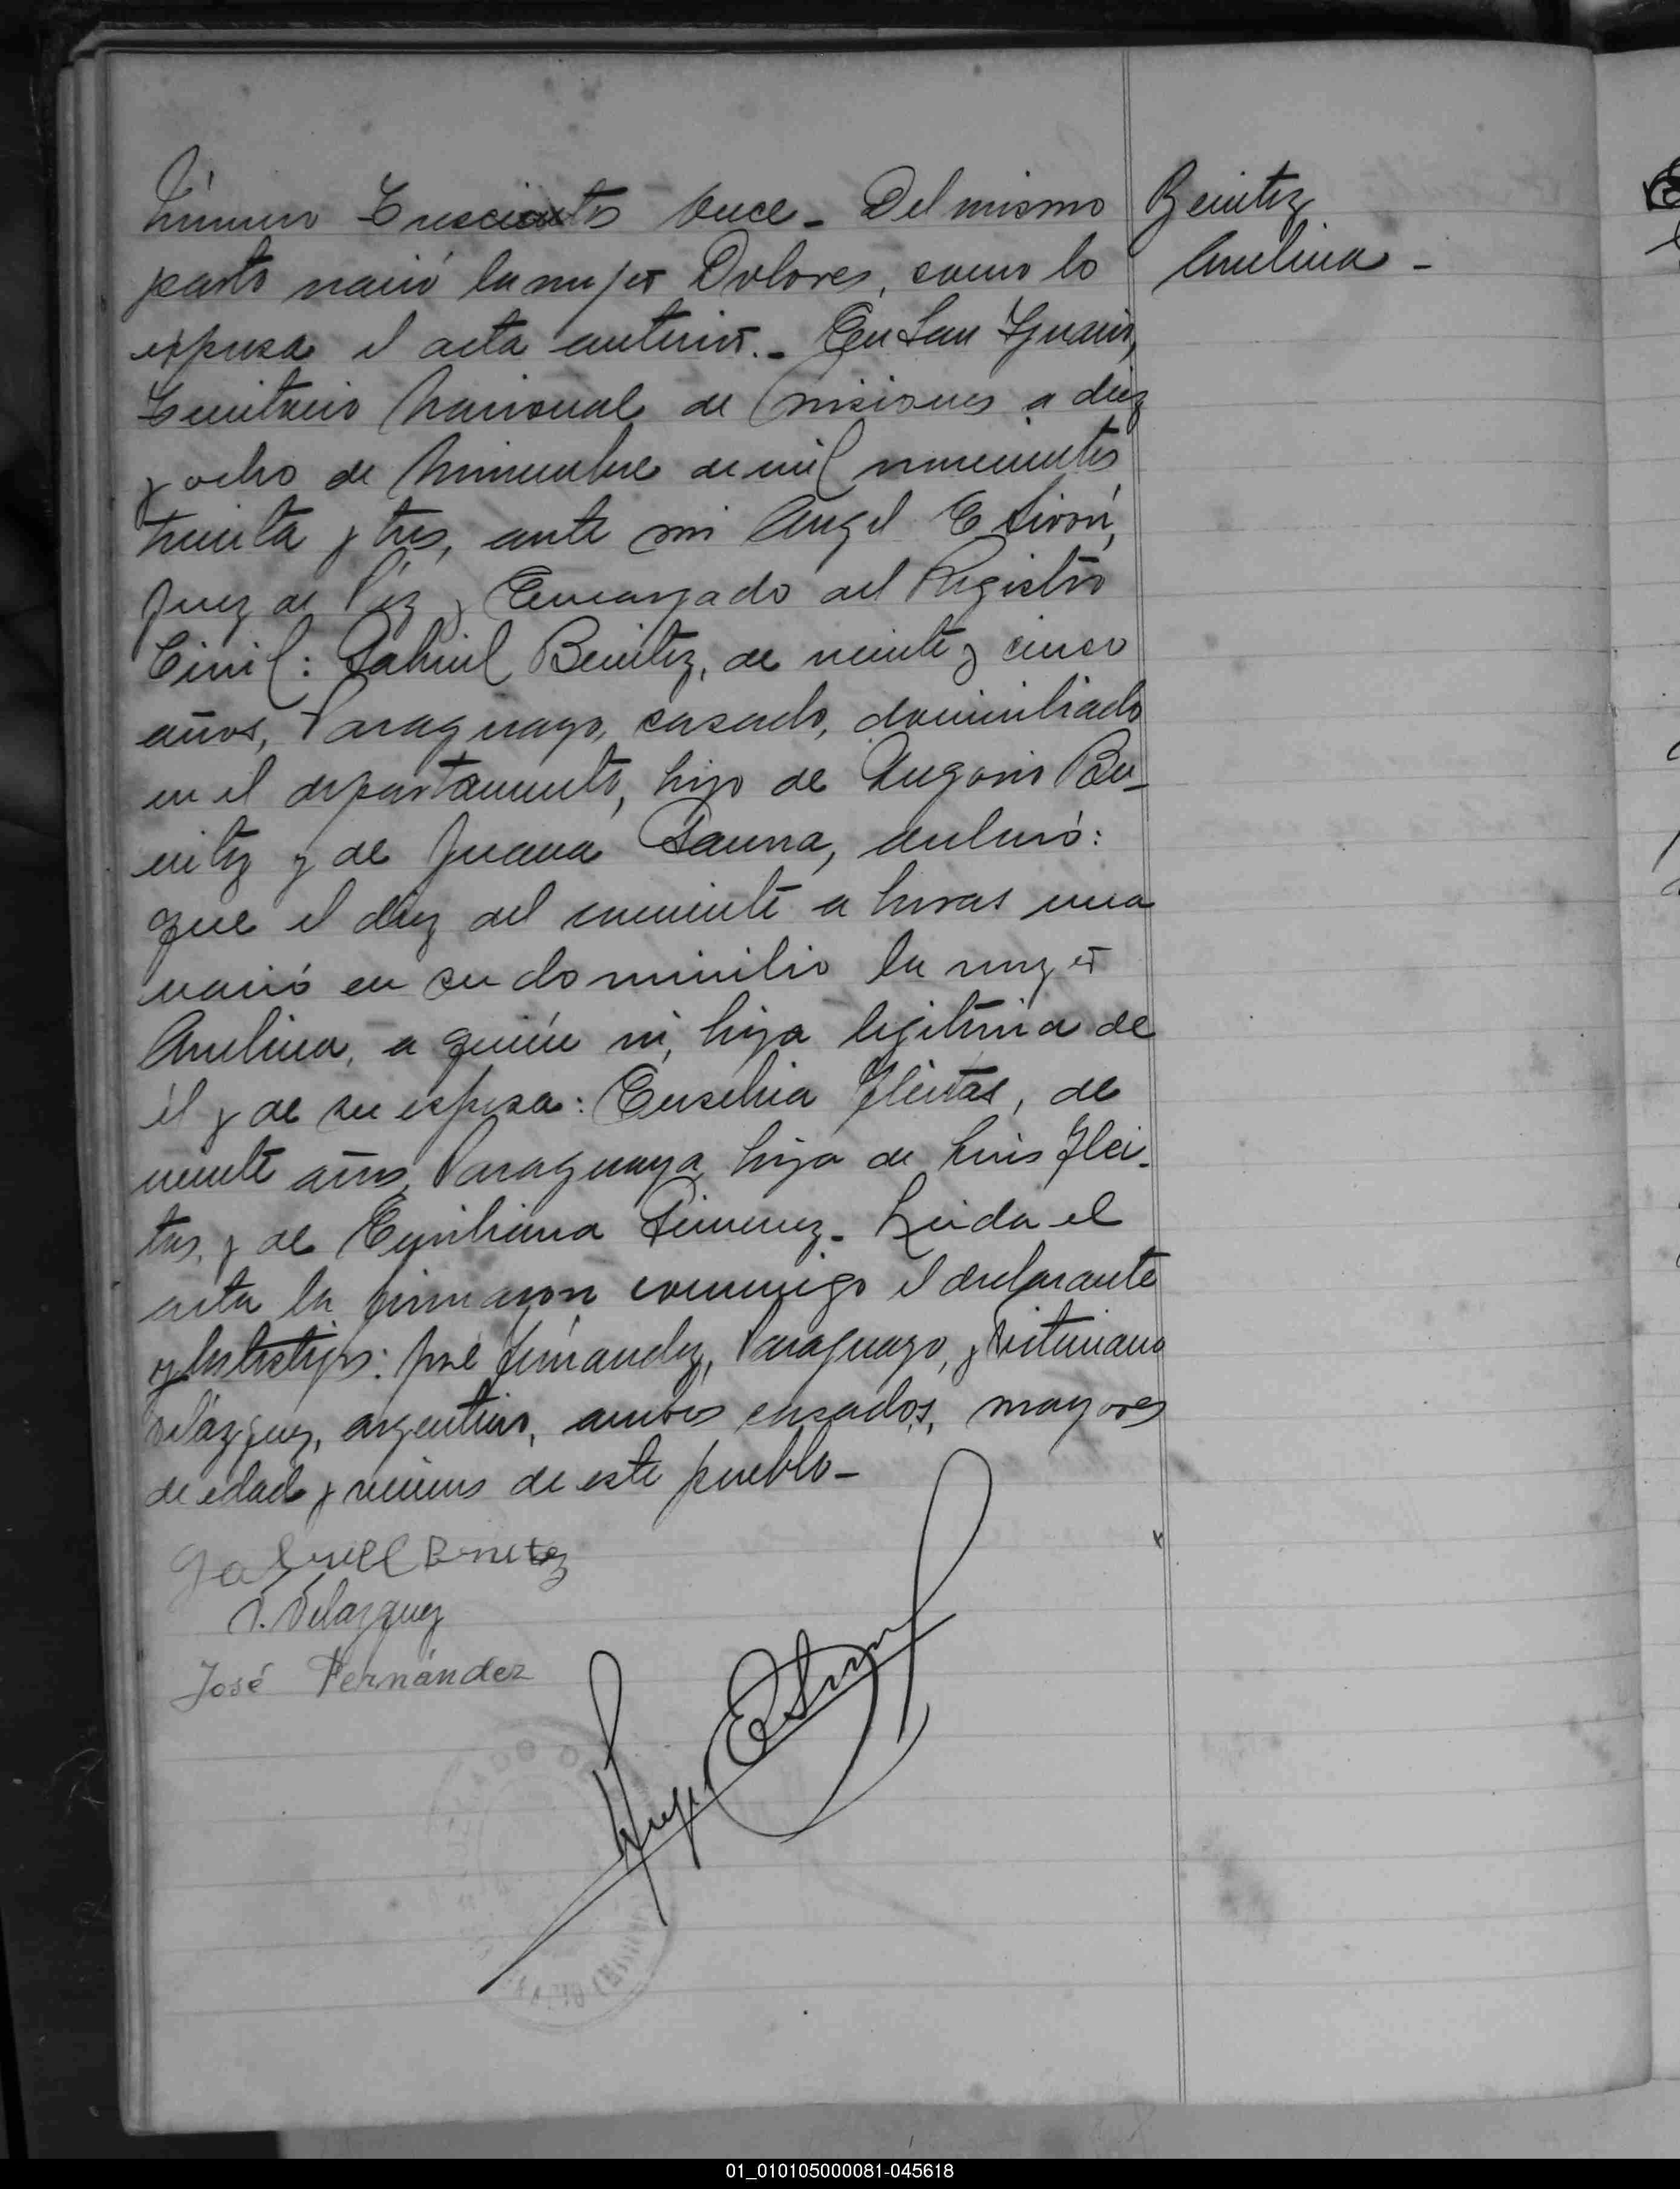 Número Trescientos Once - Del mismo
parto nació la mujer Dolores, como lo
expresa el acta anterior. - En San Ignacio,
Territorio Nacional de Misiones a diez
y ocho de Noviembre de mil novecientos
treinta y tres, ante mi Angel E
Juez de Paz y Encargado del Registro
Civil: Gabriel Benitez, de veinte y cinco
años, Paraguayo, casado, domiciliado
en el departamento, hijo de Gregorio Be-
nitez y de Juana Gauna, declaró:
que el diez del corriente a horas una
nació en su domicilio la mujer
Avelina, a quién ví, hija legitima de
él y de su esposa: Eusebia Fleitas, de
veinte años, Paraguaya, hija de Luis Flei-
tas, y de Emiliana Gimenez - Leida el
acta la firmaron conmigo el declarante
y los testigos: José Fernandez, Paraguayo, y Victoriano
Velázquez, argentino, ambos casados, mayores
de edad y vecinos de este pueblo -
Gabriel Benitez
V. Velazquez
José Fernández
Benitez
Avelina -
01_010105000081-045618